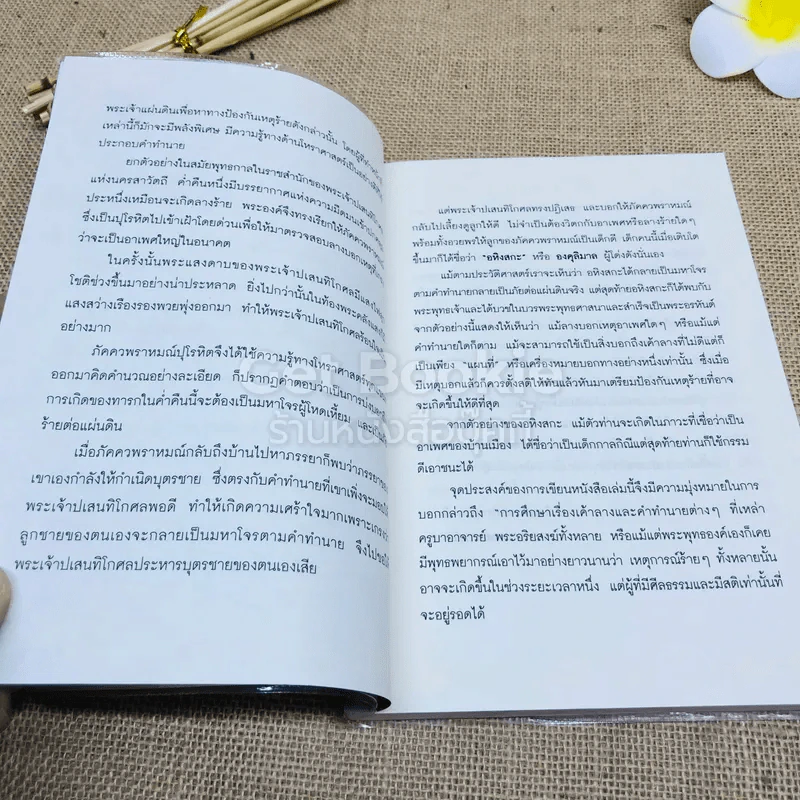 พระเจ้าแผ่นดินเพื่อหาทางป้องกันเหตุร้ายดังกล่าวนั้น โดยผู้ที่ทำหน้าที่
เหล่านี้ก็มักจะมีพลังพิเศษ มีความรู้ทางด้านโหราศาสตร์เป็นอย่างดี
ประกอบคำทำนาย
ยกตัวอย่างในสมัยพุทธกาลในราชสำนักของพระเจ้าปเสนทิโกศล
แห่งนครสาวัตถี ค่ำคืนหนึ่งมีบรรยากาศแห่งความมืดมนเข้าปกคลุม
ประหนึ่งเหมือนจะเกิดลางร้าย พระองค์จึงทรงเรียกให้ภัคควพราหมณ์
ซึ่งเป็นปุโรหิตไปเข้าเฝ้าโดยด่วนเพื่อให้มาตรวจสอบลางบอกเหตุ
ว่าจะเป็นอาเพศใหญ่ในอนาคต
ในครั้งนั้นพระแสงดาบของพระเจ้าปเสนทิโกศลมีแสง
โชติช่วงขึ้นมาอย่างน่าประหลาด ยิ่งไปกว่านั้นในท้องพระคลังแสง
แสงสว่างเรืองรองพวยพุ่งออกมา ทำให้พระเจ้าปเสนทิโกศลร้อน
อย่างมาก
ภัคควพราหมณ์ปุโรหิตจึงได้ใช้ความรู้ทางโหราศาสตร์
ออกมาคิดคำนวณอย่างละเอียด ก็ปรากฏคำตอบว่าเป็นการบ่งบอก
การเกิดของทารกในค่ำคืนนี้จะต้องเป็นมหาโจรผู้โหดเหี้ยม และเป็น
ร้ายต่อแผ่นดิน
เมื่อภัคควพราหมณ์กลับถึงบ้านไปหาภรรยาก็พบว่าภรรยาของ
เขาเองกำลังให้กำเนิดบุตรชาย ซึ่งตรงกับคำทำนายที่เขาเพิ่งจะ
พระเจ้าปเสนทิโกศลพอดี ทำให้เกิดความเศร้าใจมากเพราะเกรงว่า
ลูกชายของตนเองจะกลายเป็นมหาโจรตามคำทำนาย จึงไปขอให้
พระเจ้าปเสนทิโกศลประหารบุตรชายของตนเองเสีย
แต่พระเจ้าปเสนทิโกศลทรงปฏิเสธ และบอกให้ภัคควพราหมณ์
กลับไปเลี้ยงดูลูกให้ดี ไม่จำเป็นต้องวิตกกับอาเพศหรือลางร้ายใดๆ
พร้อมทั้งอวยพรให้ลูกของภัคควพราหมณ์เป็นเด็กดี เด็กคนนี้เมื่อเติบโต
ขึ้นมาก็ได้ชื่อว่า "อหิงสกะ" หรือ องคุลิมาล ผู้โด่งดังนั่นเอง
แม้ตามประวัติศาสตร์เราจะเห็นว่า อหิงสกะได้กลายเป็นมหาโจร
ตามคำทำนายกลายเป็นภัยต่อแผ่นดินจริง แต่สุดท้ายอหิงสกะก็ได้พบกับ
พระพุทธเจ้าและได้บวชในบวรพระพุทธศาสนาและสำเร็จเป็นพระอรหันต์
จากตัวอย่างนี้แสดงให้เห็นว่า แม้ลางบอกเหตุอาเพศใดๆ หรือแม้แต่
คำทำนายใดก็ตาม แม้จะสามารถใช้เป็นสิ่งบอกถึงเค้าลางที่ไม่ดีแต่ก็
เป็นเพียง "แผนที่" หรือเครื่องหมายบอกทางอย่างหนึ่งเท่านั้น ซึ่งเมื่อ
มีเหตุบอกแล้วก็ควรตั้งสติให้ทันแล้วหันมาเตรียมป้องกันเหตุร้ายที่อาจ
จะเกิดขึ้นให้ดีที่สุด
จากตัวอย่างของอหิงสกะ แม้ตัวท่านจะเกิดในภาวะที่เชื่อว่าเป็น
อาเพศของบ้านเมือง ได้ชื่อว่าเป็นเด็กกาลกิณีแต่สุดท้ายท่านก็ใช้กรรม
ดีเอาชนะได้
จุดประสงค์ของการเขียนหนังสือเล่มนี้จึงมีความมุ่งหมายในการ
บอกกล่าวถึง "การศึกษาเรื่องเค้าลางและคำทำนายต่างๆ ที่เหล่า
ครูบาอาจารย์ พระอริยสงฆ์ทั้งหลาย หรือแม้แต่พระพุทธองค์เองก็เคย
มีพุทธพยากรณ์เอาไว้มาอย่างยาวนานว่า เหตุการณ์ร้ายๆ ทั้งหลายนั้น
อาจจะเกิดขึ้นในช่วงระยะเวลาหนึ่ง แต่ผู้ที่มีศีลธรรมและมีสติเท่านั้นที่
จะอยู่รอดได้
Get Bookie
ร้านหนังสือกู๊ดบุ๊กกี้